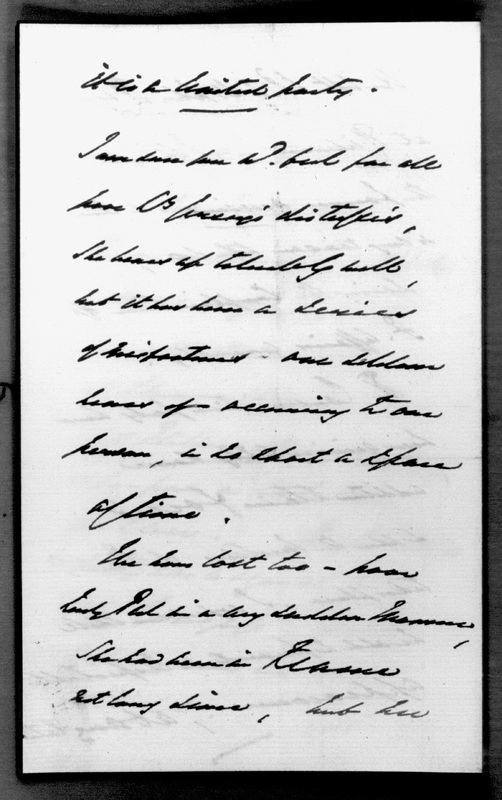 it is a United party.
I am sure you wd. feel for all
poor 's distresses,
She bears up tolerably well,
but it has been a series
of misfortunes - one seldom
hears of - occurring to one
person, in so short a space
of time.
She has lost too - poor
Lady in a very sudden manner,
She had been in
not long since, but her